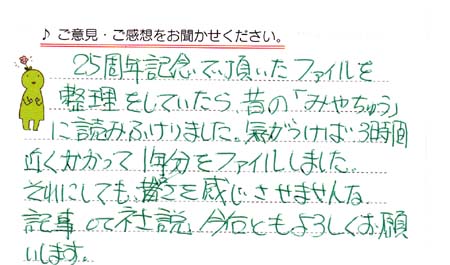 ♪ ご意見・ご感想をお聞かせください。
25周年記念で頂いたファイルを
整理をしていたら、昔の「みやちゅう」
に読みふけりました。気がつけば3時間
近くかかって1年分をファイルしました。
それにしても、昔さを感じさせませんな
記事って社説、今后ともよろしくお願
いします。